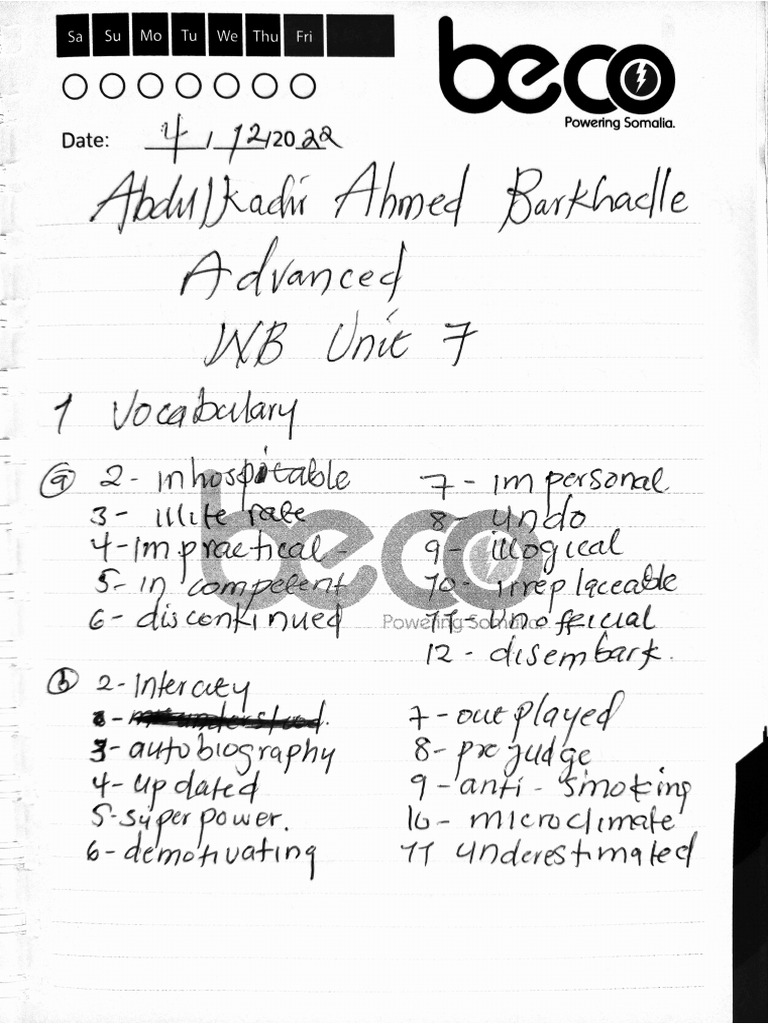 Sa Su Mo Tu We Thu Fri
beco
Powering Somalia.
Date: 4 / 12 /20 22
Abdulkadir Ahmed Barkhadle
Advanced
WB Unit 7
1 Vocabulary
(a) 2 - inhospitable
3 - illiterate
4 - impractical -
5 - incompetent
6 - discontinued
7 - impersonal
8 - undo
9 - illogical
10 - irreplaceable
11 - unofficial
12 - disembark.
beco
Powering Somalia.
(b) 2 - Intercity
3 - autobiography
4 - updated
5 - superpower.
6 - demotivating
7 - outplayed
8 - prejudge
9 - anti - smoking
10 - microclimate
11 underestimated